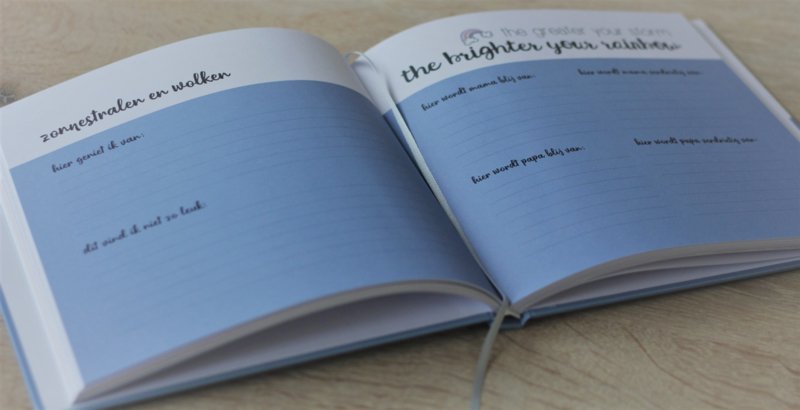 zonnestralen en wolken
hier geniet ik van:
dit vind ik niet zo leuk:
the greater your storm
the brighter your rainbow
hier wordt mama blij van:
hier wordt mama verdrietig van:
hier wordt papa blij van:
hier wordt papa verdrietig van: